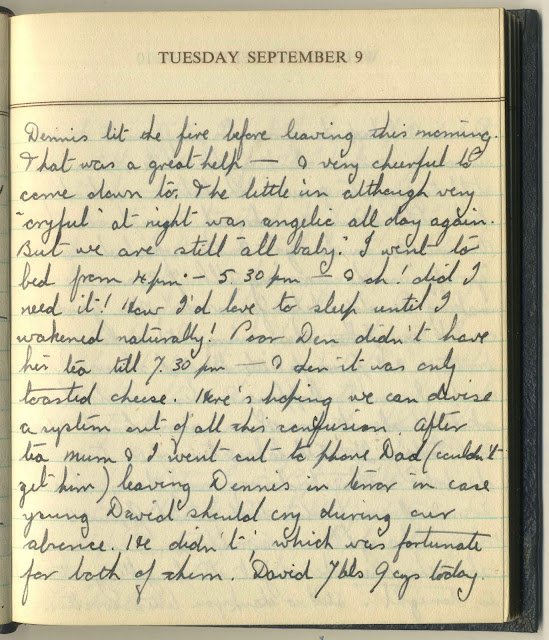 TUESDAY SEPTEMBER 9
Dennis lit the fire before leaving this morning.
That was a great help — & very cheerful to
come down to. The little un although very
"cryful" at night was angelic all day again.
But we are still "all baby". I went to
bed from 4 pm. – 5.30 pm — & oh! did I
need it! How I'd love to sleep until I
wakened naturally! Poor Den didn't have
his tea till 7.30 pm — & then it was only
toasted cheese. Here's hoping we can devise
a system out of all this confusion. After
tea Mum & I went out to phone Dad (couldn't
get him) leaving Dennis in terror in case
young David should cry during our
absence. He didn't, which was fortunate
for both of them. David 7 lbs 9 ozs today.